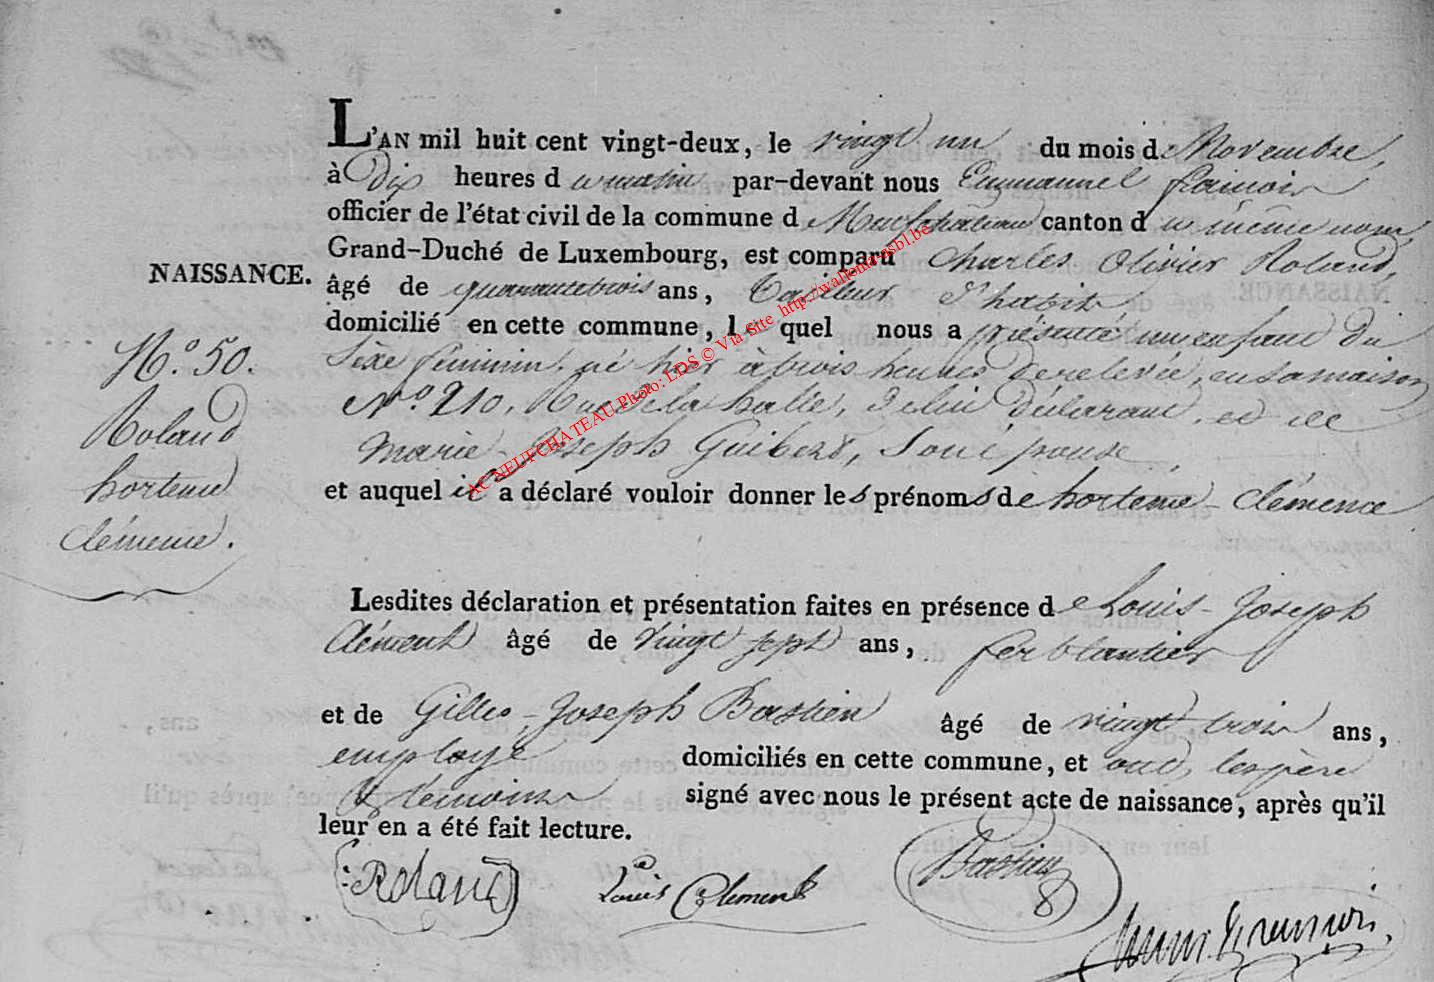 L'AN mil huit cent vingt-deux, le vingt un du mois de Novembre,
à Dix heures du matin par-devant nous Emmanuel
officier de l'état civil de la commune de Neufchateau canton du même nom,
Grand-Duché de Luxembourg, est comparu Charles Olivier Roland,
NAISSANCE.
âgé de quarantetrois ans, Tailleur d'habits
domicilié en cette commune, lequel nous a présenté un enfant du
Sexe féminin, né hier à trois heures de relevée, en sa maison
N.º 210, Rue de la halle, de lui déclarant, et de
Marie-Joseph Guibert, Son épouse,
et auquel il a déclaré vouloir donner les prénoms de hortense-Clémence
N.º 50.
Roland
hortense
Clémence.
Lesdites déclaration et présentation faites en présence de Louis-Joseph
Clément âgé de vingt sept ans, ferblantier
et de Gilles-Joseph Bastien âgé de vingt trois ans,
employé domiciliés en cette commune, et ont, les père
& témoins signé avec nous le présent acte de naissance, après qu'il
leur en a été fait lecture.
Roland
Louis Clement
Bastien
AC NEUFCHATEAU Photo: LDS © Via Site http://wallonia-asbl.be